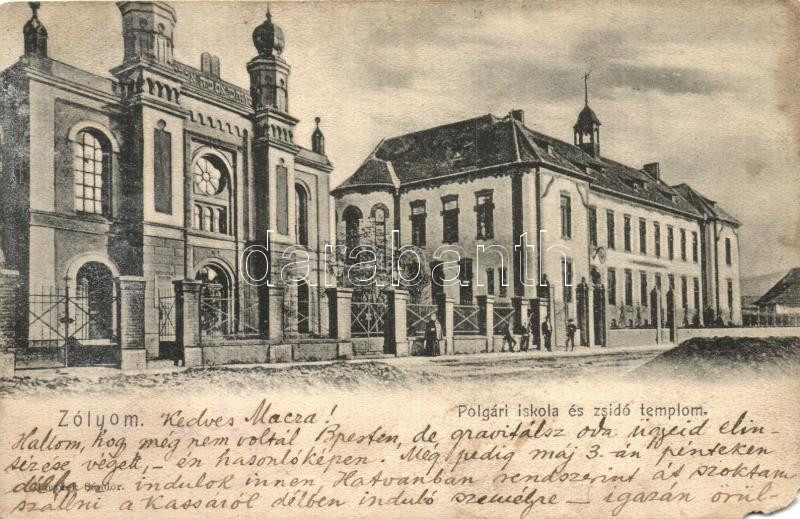 darabanth
Zólyom.
Polgári iskola és zsidó templom.
Kedves Macza!
Hallom, hogy még nem voltál Bpesten, de gravitálsz oda ügyeid elin-
tézése végett, – én hasonlóképen. Még pedig máj 3.-án pénteken
délben indulok innen, Hatvanban rendszerint át szoktam
Sándor.
szállni a Kassáról délben induló személyre – igazán örül-